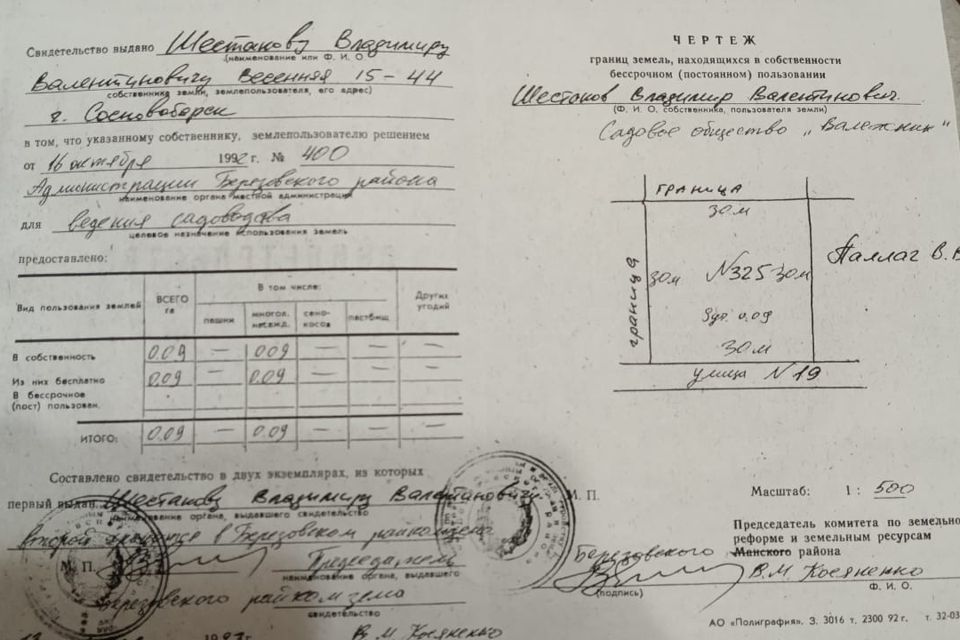 Свидетельство выдано Шестакову Владимиру
(наименование или Ф. И. О.
Валентиновичу Весенняя 15-44
собственника земли, землепользователя, его адрес)
г. Сосновоборск
в том, что указанному собственнику, землепользователю решением
от 16 октября 1992 г. № 400
Администрации Березовского района
наименование органа местной администрации
для ведения садоводства
целевое назначение использования земель
предоставлено:
Вид пользования землей ВСЕГО га В том числе: Других угодий
пашни многол. насажд. сенокосов пастбищ
В собственность 0.09 — 0.09 — — —
Из них бесплатно 0.09 — 0.09 — — —
В бессрочное (пост) пользован.
ИТОГО: 0.09 — 0.09 — — —
Составлено свидетельство в двух экземплярах, из которых
первый выдан Шестакову Владимиру Валентиновичу
наименование органа, выдавшего свидетельства
Второй хранится в Березовском райкомземе
М. П. Председатель
наименование органа, выдавшего
Березовского райкомзема
свидетельство
В. М Косяненко
ЧЕРТЕЖ
границ земель, находящихся в собственности
бессрочном (постоянном) пользовании
Шестаков Владимир Валентинович.
(Ф. И. О. собственника, пользователя земли)
Садовое общество „Валежник"
граница
30м
граница 30м N325 30м Паллаг В.
0.09
30м
улица N19
М. П.
Масштаб: 1 : 500
Председатель комитета по земельно
реформе и земельным ресурсам
Березовского Манского района
В. М Косяненко
(подпись) Ф. И. О.
АО «Полиграфия». З. 3016 т. 2300 92 г. т. 32-03